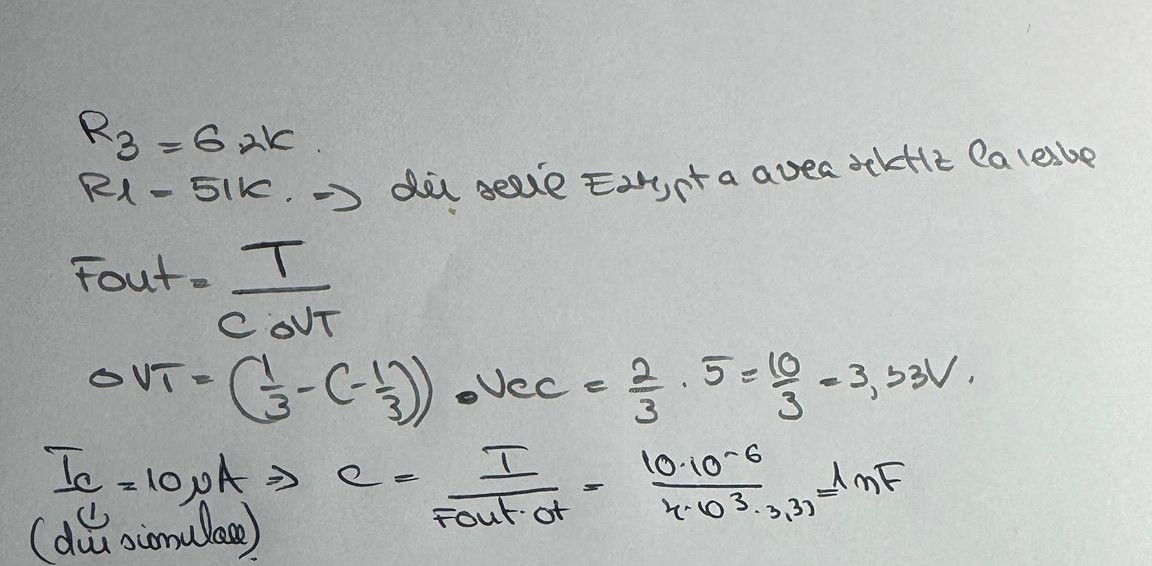 R3 = 6.2K.
R1 - 51K. => din serie a avea la iesire
Fout = I / C ΔVT
ΔVT = (1/3 - (-1/3)) • Vcc = 2/3 . 5 = 10/3 = 3,33V.
Ic = 10µA => C = I / Fout.Δt = 10.10^-6 / .10^3.3,33 = 1nF
(din simulare)